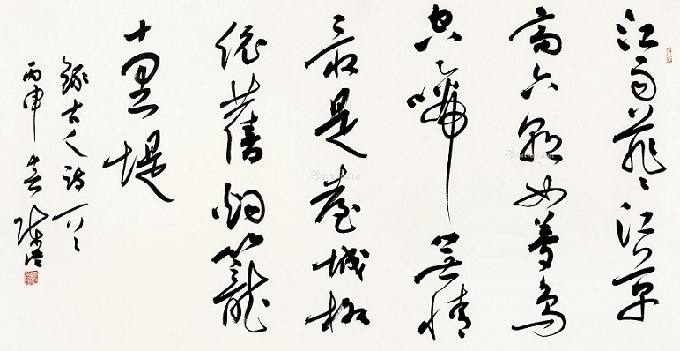 江雨霏霏江草
齊六朝如夢鳥
空啼無情
最是臺城柳
依舊烟籠
十里堤
錄古人詩一首
丙申春